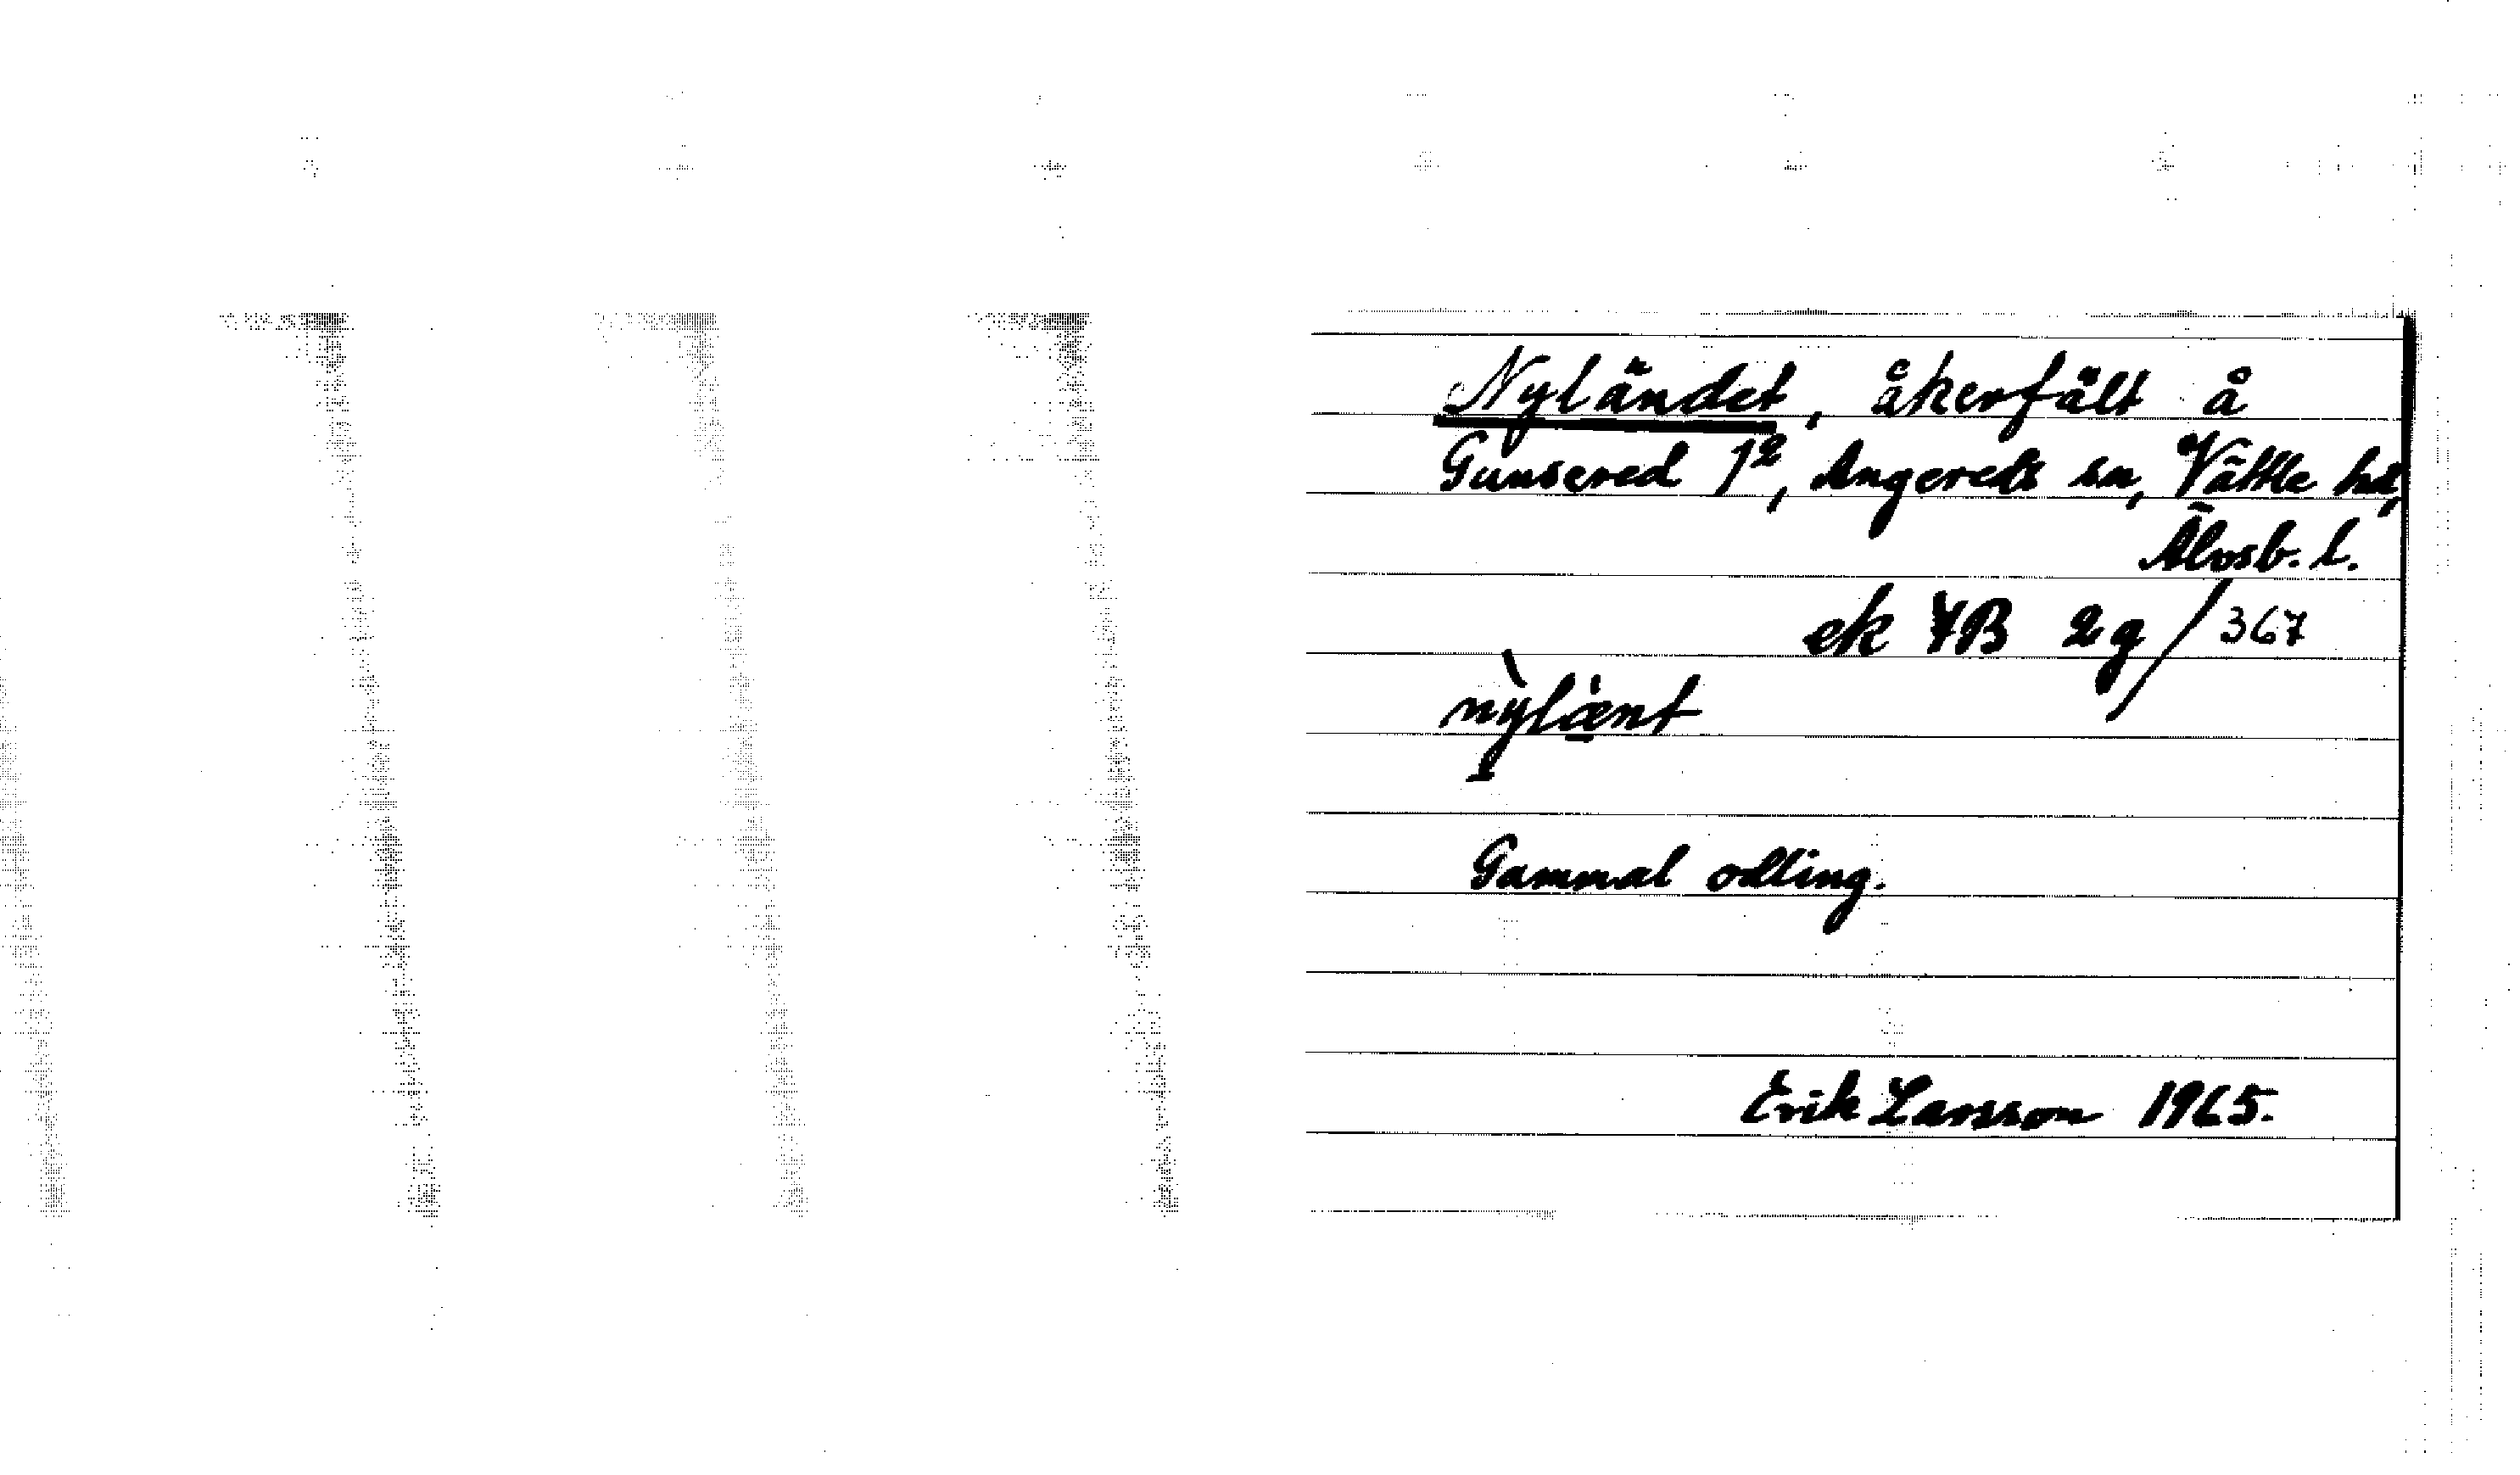 Nyländet, åkerfält å
Gunsered 1², Angereds sn, Vättle hd,
Älvsb. l.
ek 7B 2g / 367
nỳ̖lænt
Gammal odling.
Erik Larsson 1965.